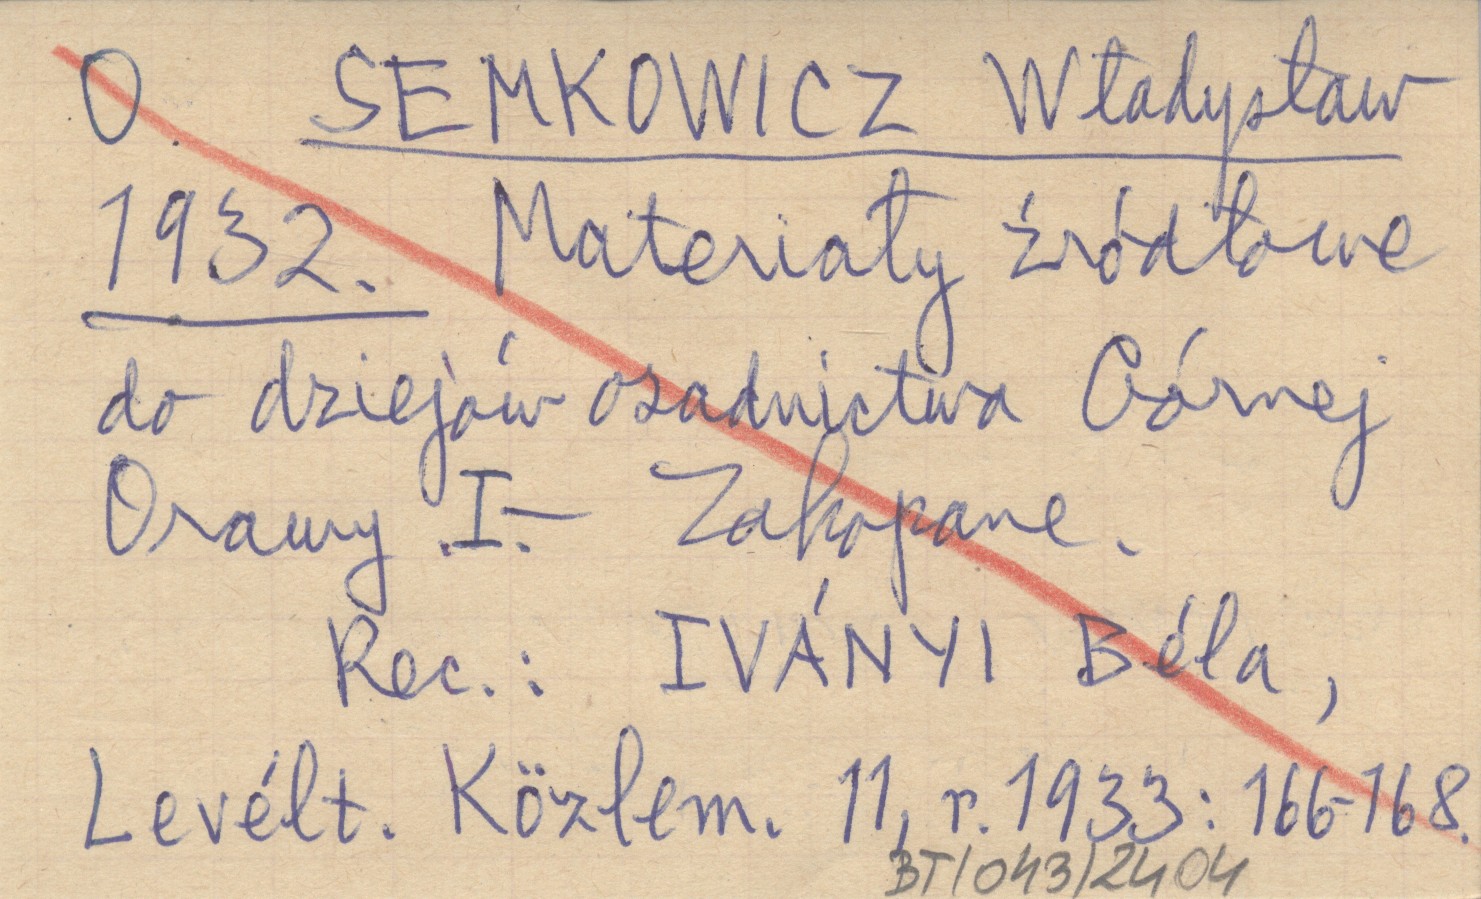 O. SEMKOWICZ Władysław
1932. Materiały źródłowe
do dziejów osadnictwa Górnej
Orawy I.– Zakopane.
Rec.: IVÁNYI Béla,
Levélt. Közlem. 11, r. 1933: 166-168.
BT/043/2404